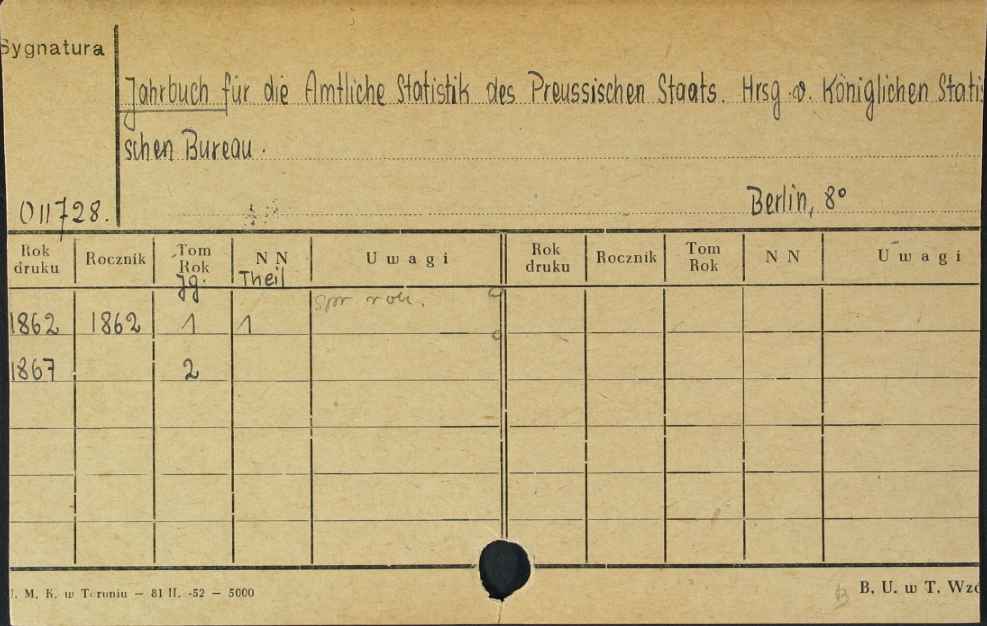 Sygnatura
Jahrbuch für die Amtliche Statistik des Preussischen Staats. Hrsg. v. Königlichen Statis
schen Bureau.
011728.
Berlin, 8°
Rok druku Rocznik Tom Rok N N U w a g i Rok druku Rocznik Tom Rok N N U w a g i
Jg. Theil
spr
1862 1862 1 1
1867 2
M. K. w Toruniu — 81 II. -52 — 5000
B. U. w T. Wzó
B